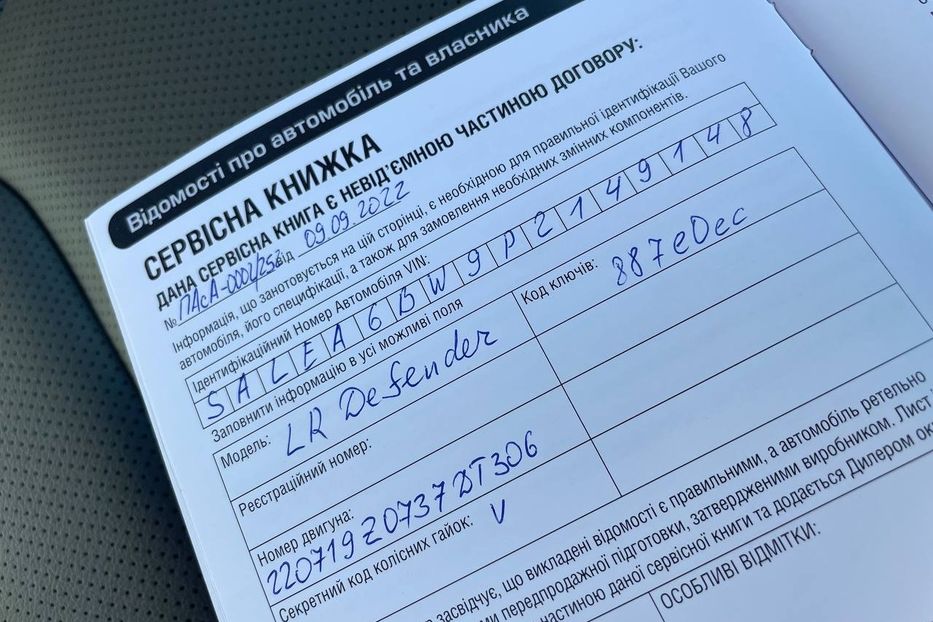 Відомості про автомобіль та власника
СЕРВІСНА КНИЖКА
ДАНА СЕРВІСНА КНИГА Є НЕВІД'ЄМНОЮ ЧАСТИНОЮ ДОГОВОРУ:
№ від 09.09.2022
Інформація, що занотовується на цій сторінці, є необхідною для правильної ідентифікації Вашого
автомобіля, його специфікації, а також для замовлення необхідних змінних компонентів.
Ідентифікаційний Номер Автомобіля VIN:
SALEA6BW9P2149148
Заповнити інформацію в усі можливі поля
Модель: LR Defender
Код ключів: 887eDec
Реєстраційний номер:
Номер двигуна:
220719Z0737DT306
Секретний код колісних гайок: V
засвідчує, що викладені відомості є правильними, а автомобіль ретельно
передпродажної підготовки, затвердженими виробником. Лист
частиною даної сервісної книги та додається Дилером
ОСОБЛИВІ ВІДМІТКИ: